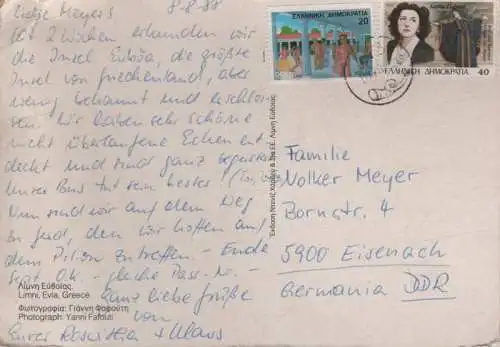 Liebe Meyers! 8.8.88
Seit 2 Wochen erkunden wir
die Insel Euböa, die größte
Insel von Griechenland, aber
wenig bekannt und erschlos-
sen. Wir haben sehr schöne
nicht überlaufene Ecken ent-
deckt und sind ganz begeistert.
Unser Bus tut sein bestes
Nun sind wir auf dem Weg
zu
dem Pilion zutreffen. - Ende
Sept. O.K. - gleiche Pass-Nr. -
Ganz liebe Grüße
von
Eure Roswitha + Klaus
Λίμνη Εύβοιας,
Limni, Evia, Greece
Φωτογραφία: Γιάννη Φαφούτη
Photograph: Yanni Fafouti
ΕΛΛΗΝΙΚΗ ΔΗΜΟΚΡΑΤΙΑ
20
ΕΛΛΗΝΙΚΗ ΔΗΜΟΚΡΑΤΙΑ 40
Familie
Volker Meyer
Bornstr. 4
5900 Eisenach
Germania DDR